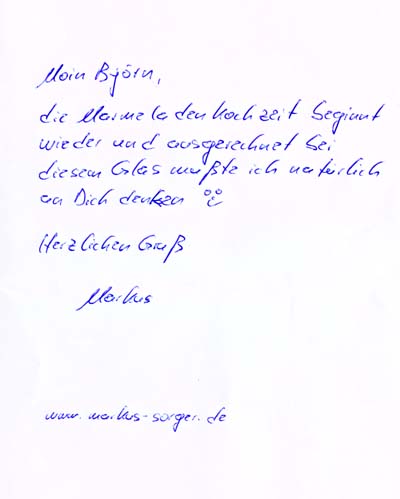 Moin Björn,
die Marmeladenkochzeit beginnt
wieder und ausgerechnet bei
diesem Glas mußte ich natürlich
an Dich denken
Herzlichen Gruß
Markus
www.markus-sorger.de